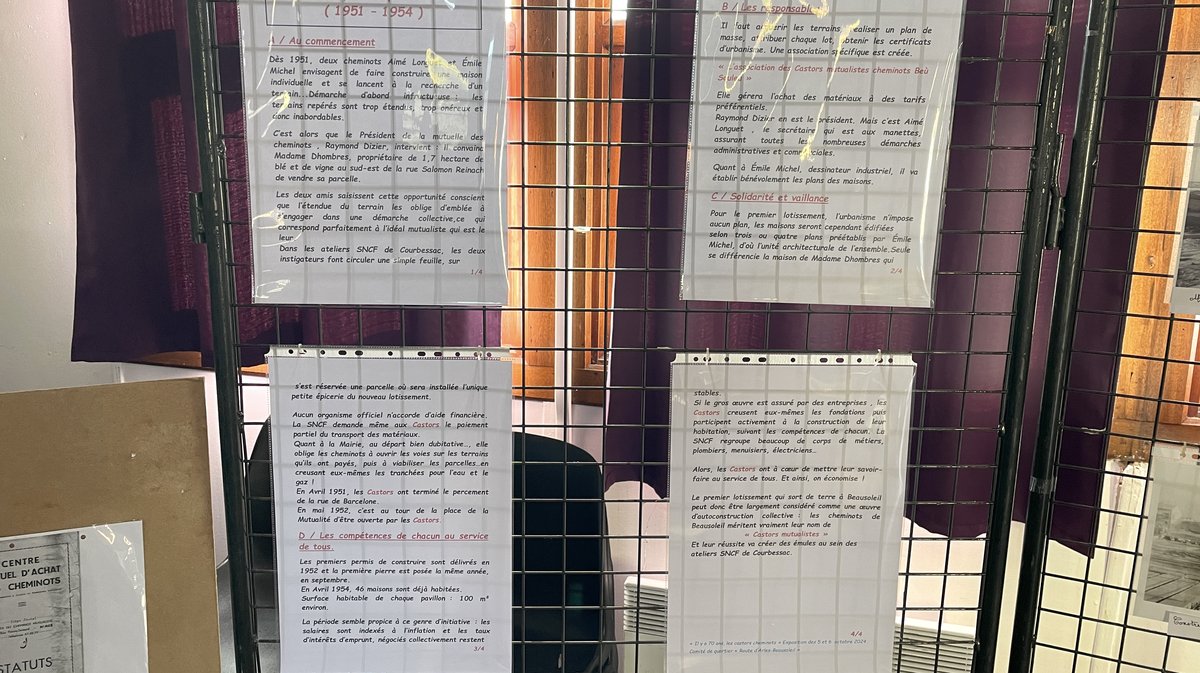 ( 1951 - 1954 )
A / Au commencement
Dès 1951, deux cheminots Aimé Émile
Michel envisagent de faire construire une maison
individuelle et se lancent à la recherche d'un
terrain...Démarche d'abord infructueuse : les
terrains repérés sont trop étendus, trop onéreux et
donc inabordables.
C'est alors que le Président de la mutuelle des
cheminots , Raymond Dizier, intervient : il convainc
Madame Dhombres, propriétaire de 1,7 hectare de
blé et de vigne au sud-est de la rue Salomon Reinach
de vendre sa parcelle.
Les deux amis saisissent cette opportunité conscient
que l'étendue du terrain les oblige d'emblée à
s'engager dans une démarche collective,ce qui
correspond parfaitement à l'idéal mutualiste qui est le
leur
Dans les ateliers SNCF de Courbessac, les deux
instigateurs font circuler une simple feuille, sur
1/4
B / Les responsables
Il faut acquérir les terrains, réaliser un plan de
masse, attribuer chaque lot, obtenir les certificats
d'urbanisme. Une association spécifique est créée.
« L'association des Castors mutualistes cheminots Beù
Souleù »
Elle gérera l'achat des matériaux à des tarifs
préférentiels.
Raymond Dizier en est le président. Mais c'est Aimé
Longuet , le secrétaire qui est aux manettes,
assurant toutes les nombreuses démarches
administratives et commerciales.
Quant à Émile Michel, dessinateur industriel, il va
établir bénévolement les plans des maisons.
C / Solidarité et vaillance
Pour le premier lotissement, l'urbanisme n'impose
aucun plan, les maisons seront cependant édifiées
selon trois ou quatre plans préétablis par Émile
Michel, d'où l'unité architecturale de l'ensemble.Seule
se différencie la maison de Madame Dhombres qui
2/4
s'est réservée une parcelle où sera installée l'unique
petite épicerie du nouveau lotissement.
Aucun organisme officiel n'accorde d'aide financière.
La SNCF demande même aux Castors le paiement
partiel du transport des matériaux.
Quant à la Mairie, au départ bien dubitative..., elle
oblige les cheminots à ouvrir les voies sur les terrains
qu'ils ont payés, puis à viabiliser les parcelles en
creusant eux-mêmes les tranchées pour l'eau et le
gaz !
En Avril 1951, les Castors ont terminé le percement
de la rue de Barcelone.
En mai 1952, c'est au tour de la place de la
Mutualité d'être ouverte par les Castors.
D / Les compétences de chacun au service
de tous.
Les premiers permis de construire sont délivrés en
1952 et la première pierre est posée la même année,
en septembre.
En Avril 1954, 46 maisons sont déjà habitées.
Surface habitable de chaque pavillon : 100 m²
environ.
La période semble propice à ce genre d'initiative : les
salaires sont indexés à l'inflation et les taux
d'intérêts d'emprunt, négociés collectivement restent
3/4
stables.
Si le gros œuvre est assuré par des entreprises , les
Castors creusent eux-mêmes les fondations puis
participent activement à la construction de leur
habitation, suivant les compétences de chacun. La
SNCF regroupe beaucoup de corps de métiers,
plombiers, menuisiers, électriciens...
Alors, les Castors ont à cœur de mettre leur savoir-
faire au service de tous. Et ainsi, on économise !
Le premier lotissement qui sort de terre à Beausoleil
peut donc être largement considéré comme une œuvre
d'autoconstruction collective : les cheminots de
Beausoleil méritent vraiment leur nom de
« Castors mutualistes »
Et leur réussite va créer des émules au sein des
ateliers SNCF de Courbessac.
4/4
« Il y a 70 ans, les castors cheminots » Exposition des 5 et 6 octobre 2024
Comité de quartier « Route d'Arles-Beausoleil »
CENTRE
UEL D'ACHAT
CHEMINOTS
STATUTS